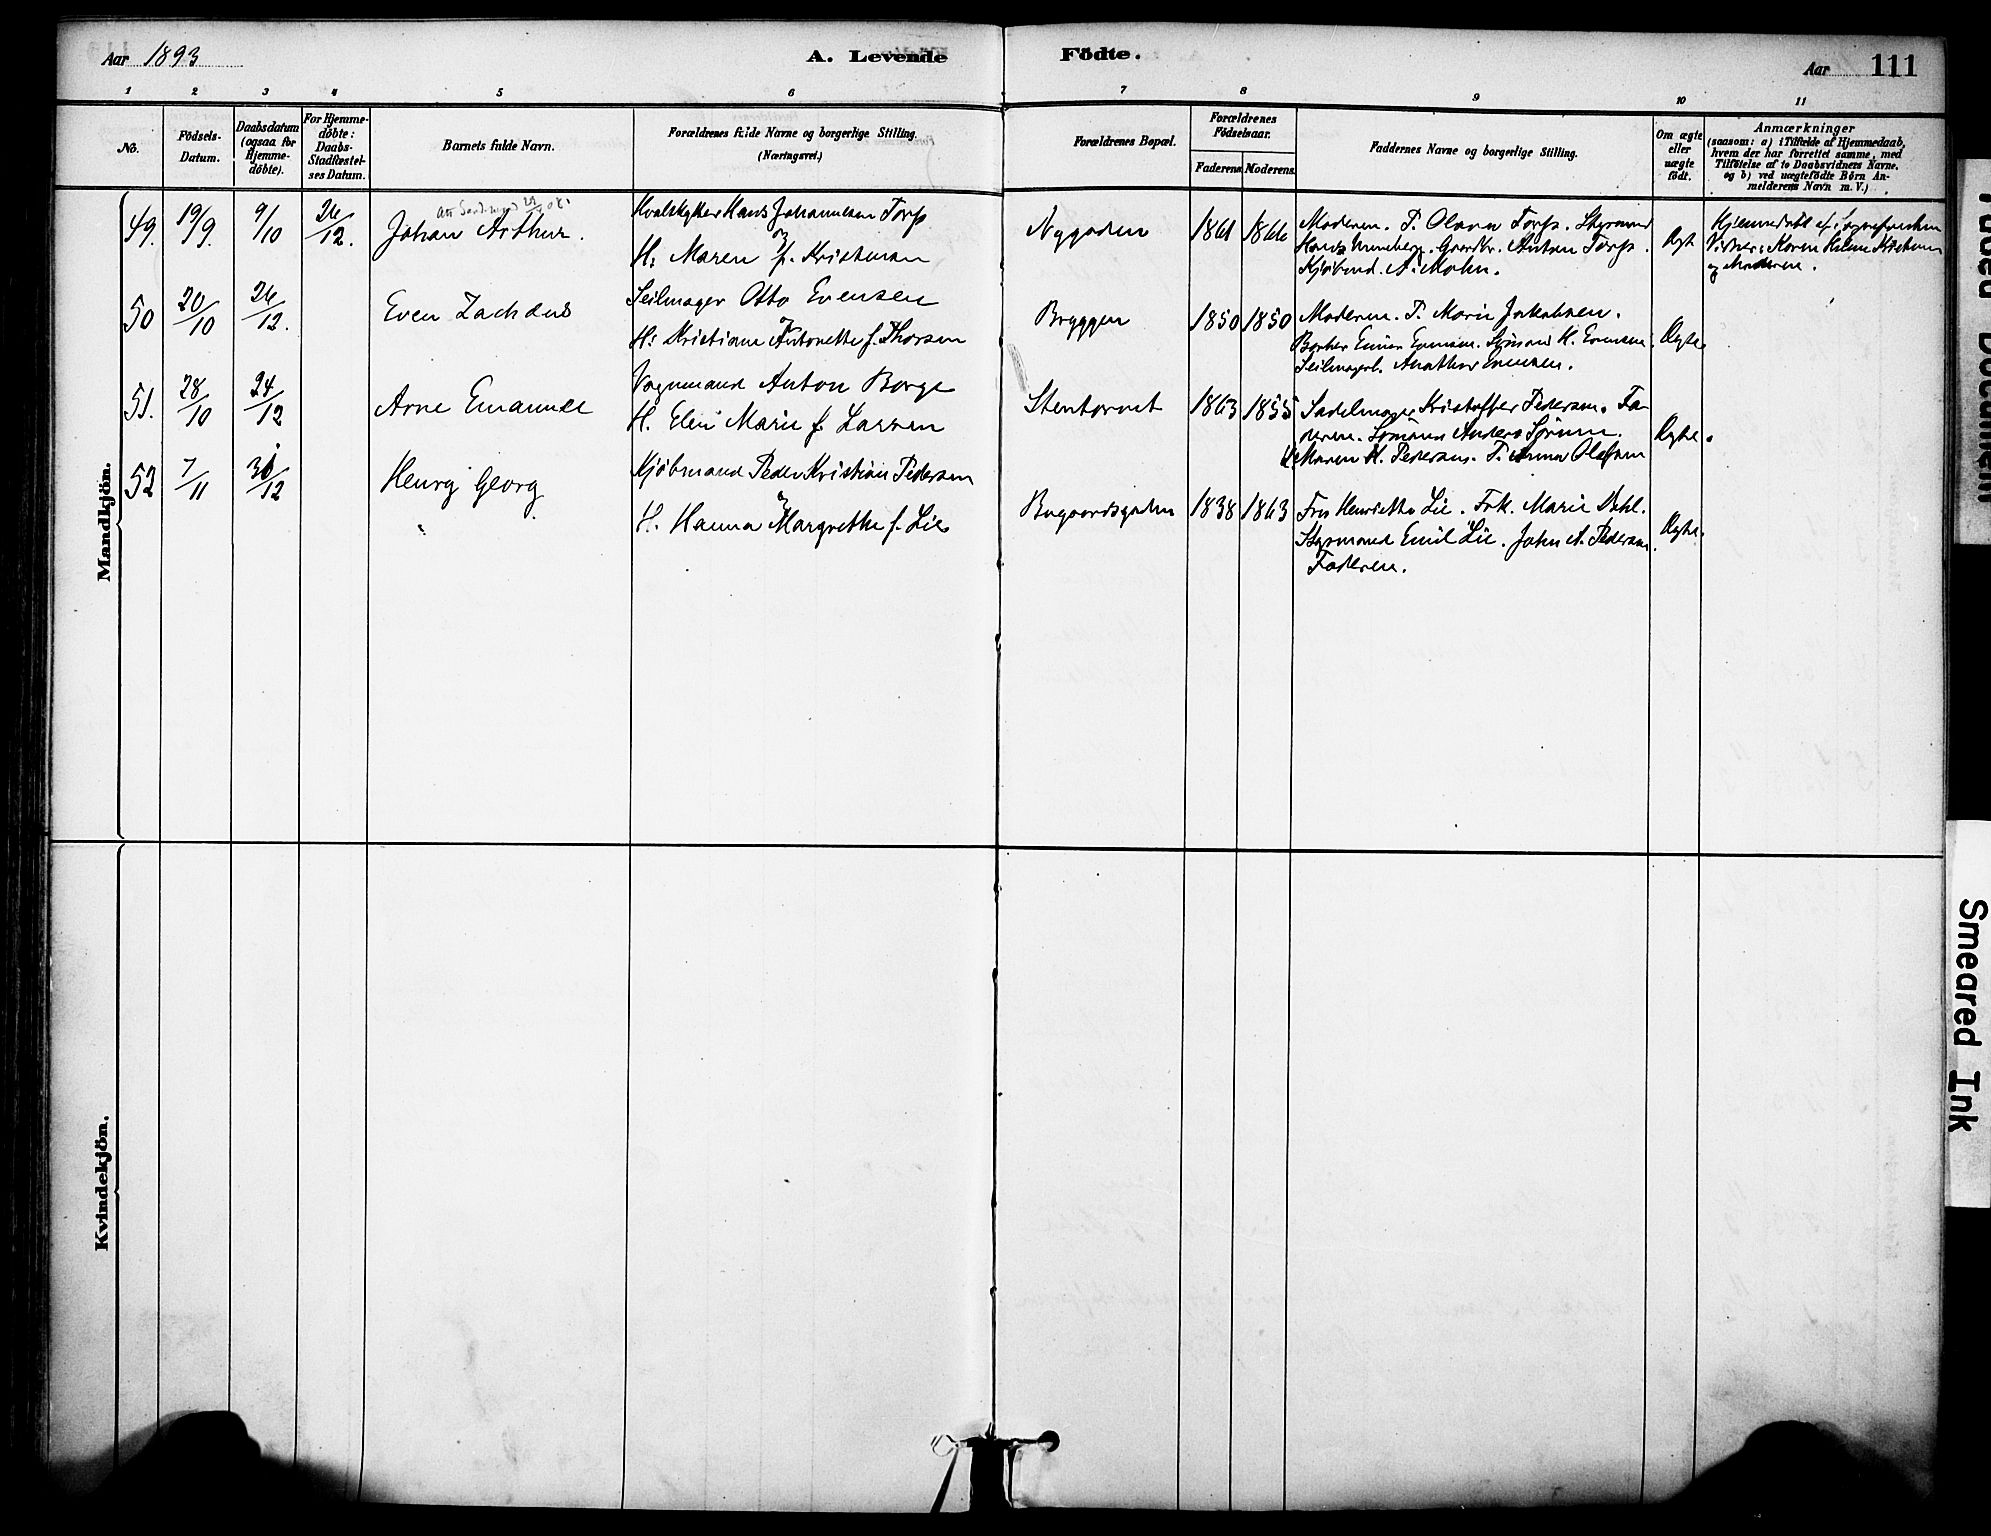 Aar 1893
A. Levende Födte.
Aar 111
1 2 3 4 5 6 7 8 9 10 11
No.
Födsels-Datum.
Daabsdatum (ogsaa for Hjemme-döbte).
For Hjemme-döbte: Daabs-Stadfæstel-ses Datum.
Barnets fulde Navn.
Forældrenes fulde Navne og borgerlige Stilling. (Næringsvei.)
Forældrenes Bopæl.
Forældrenes Födselsaar.
Faderens. Moderens.
Faddernes Navne og borgerlige Stilling.
Om ægte eller uægte födt.
Anmærkninger
(saasom: a) i Tilfælde af Hjemmedaab,
hvem der har forrettet samme, med
Tilföielse af to Daabsvidners Navne.
og b) ved uægtefödte Börn An-
melderens Navn m. V.)
Mandkjön.
49. 19/9. 9/10 26/12. Johan Arthur.
Hvalskytter Hans Johannesen Torp
H: Maren f. Kristensen
Nygaden 1861 1866
Moderen. P. Olava Torp. Styrmand
Hans Unneberg. Gaardbr. Anton Torp.
Kjöbmd. A. Mohn.
Ægte
og Moderen.
50 20/10 26/12. Even Zachæus
Seilmager Otto Evensen
H: Kristiane Antonette f. Thorsen
Bryggen 1850 1850
Moderen. P. Marie Jakobsen.
Einar Evensen. Sömand H. Evensen.
Seilmagerl. Evensen.
Ægte.
51. 28/10 24/12 Arne Emanuel
Vognmand Anton Borge
H. Elen Marie f. Larsen
Stentorvet 1863 1855
Sadelmager Kristoffer Pedersen. Fa-
deren. Sömand Anders
Maren H. Pedersen. P. Anna Olafsen
Ægte.
52 7/11 /12 Henry Georg
Kjöbmand Peder Kristian Pedersen
H. Hanna Margrethe f. Lie
Bugaardsgaden 1838 1863
Fru Henriette Lie. Frk. Marie Dehl.
Styrmand Emil Lie. John A. Pedersen.
Faderen.
Ægte.
Kvindekjön.
Faded Document
Smeared Ink